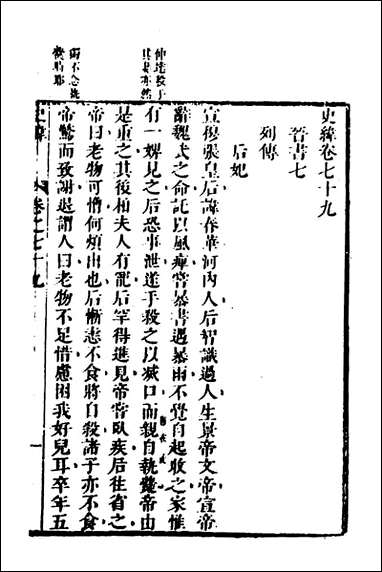 史緯卷七十九
晉書七
列傳
后妃
宣穆張皇后諱春華河內人后智識過人生景帝文帝宣帝
辭魏武之命託以風痺嘗暴書遇暴雨不覺自起收之家惟
有一婢見之后恐事泄遂手殺之以滅口而親自執爨帝由
是重之其後柏夫人有寵后罕得進見帝嘗臥疾后往省之
帝曰老物可憎何煩出也后慚恚不食將自殺諸子亦不食
帝驚而致謝退謂人曰老物不足惜慮困我好兒耳卒年五
史緯
卷之七十九
一